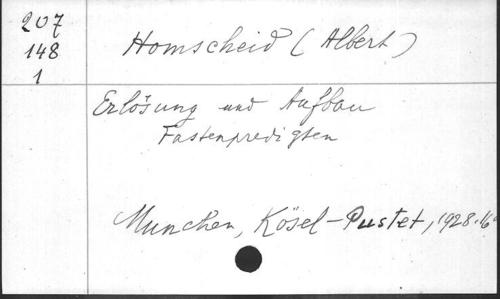 207
148
1
Homscheid (Albert)
Erlösung und Aufbau
Fastenpredigten
Munchen, Kösel-Pustet, 1928. 16°